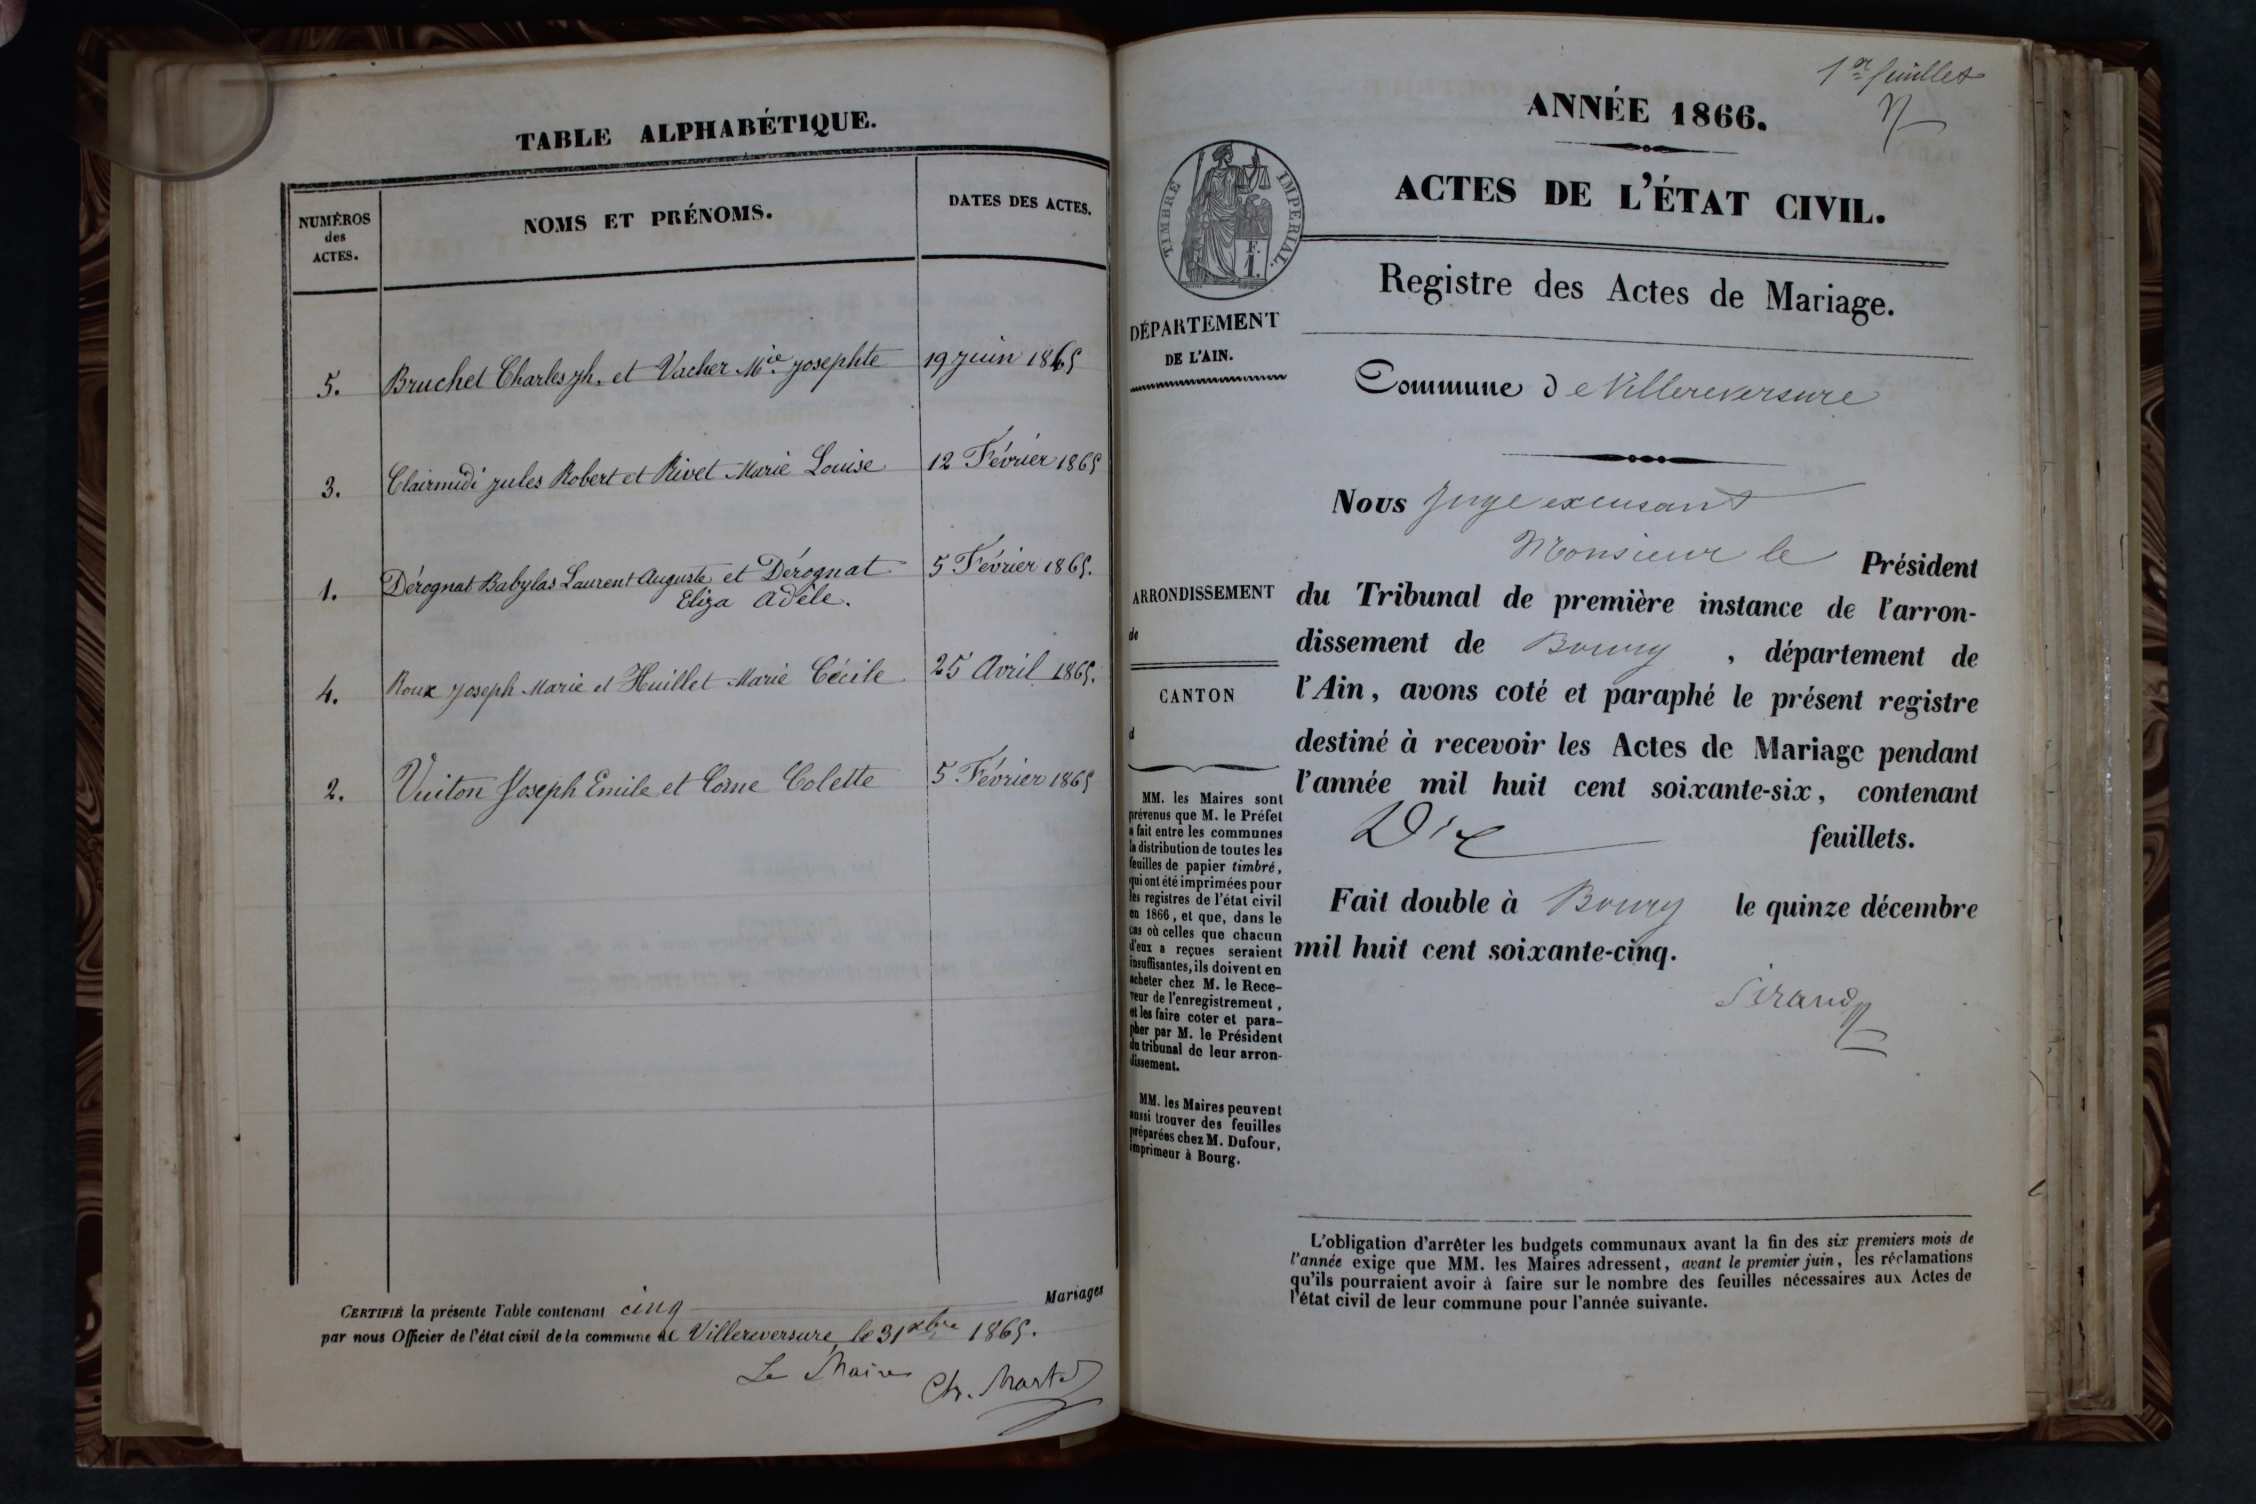 TABLE ALPHABÉTIQUE.
NUMÉROS
des
ACTES.
NOMS ET PRÉNOMS.
DATES DES ACTES.
5. Bruchet Charles Jh. et Vacher Mie Josephte 19 Juin 1865
3. Clairmidi Jules Robert et Rivet Marie Louise 12 Février 1865
1. Dérognat Babylas Laurent Auguste et Dérognat 5 Février 1865.
Eliza Adèle.
4. Roux Joseph Marie et Huillet Marie Cécile 25 Avril 1865.
2. Vuiton Joseph Emile et Come Colette 5 Février 1865
CERTIFIÉ la présente Table contenant cinq Mariages
par nous Officier de l'état civil de la commune de Villereversure, le 31 xbre 1865.
Le Maire
Ch. Martel
1er feuillet
ANNÉE 1866.
ACTES DE L'ÉTAT CIVIL.
TIMBRE IMPERIAL.
F.
1.
Registre des Actes de Mariage.
DÉPARTEMENT
DE L'AIN.
Commune de Villereversure
Nous Juge excusant
Monsieur le Président
du Tribunal de première instance de l'arron-
dissement de Bourg, département de
l'Ain, avons coté et paraphé le présent registre
destiné à recevoir les Actes de Mariage pendant
l'année mil huit cent soixante-six, contenant
Dix feuillets.
Fait double à Bourg le quinze décembre
mil huit cent soixante-cinq.
Sirand
ARRONDISSEMENT
de
CANTON
d
MM. les Maires sont
prévenus que M. le Préfet
a fait entre les communes
la distribution de toutes les
feuilles de papier timbré,
qui ont été imprimées pour
les registres de l'état civil
en 1866, et que, dans le
cas où celles que chacun
d'eux a reçues seraient
insuffisantes, ils doivent en
acheter chez M. le Rece-
veur de l'enregistrement,
et les faire coter et para-
pher par M. le Président
du tribunal de leur arron-
dissement.
MM. les Maires peuvent
aussi trouver des feuilles
préparées chez M. Dufour,
imprimeur à Bourg.
L'obligation d'arrêter les budgets communaux avant la fin des six premiers mois de
l'année exige que MM. les Maires adressent, avant le premier juin, les réclamations
qu'ils pourraient avoir à faire sur le nombre des feuilles nécessaires aux Actes de
l'état civil de leur commune pour l'année suivante.